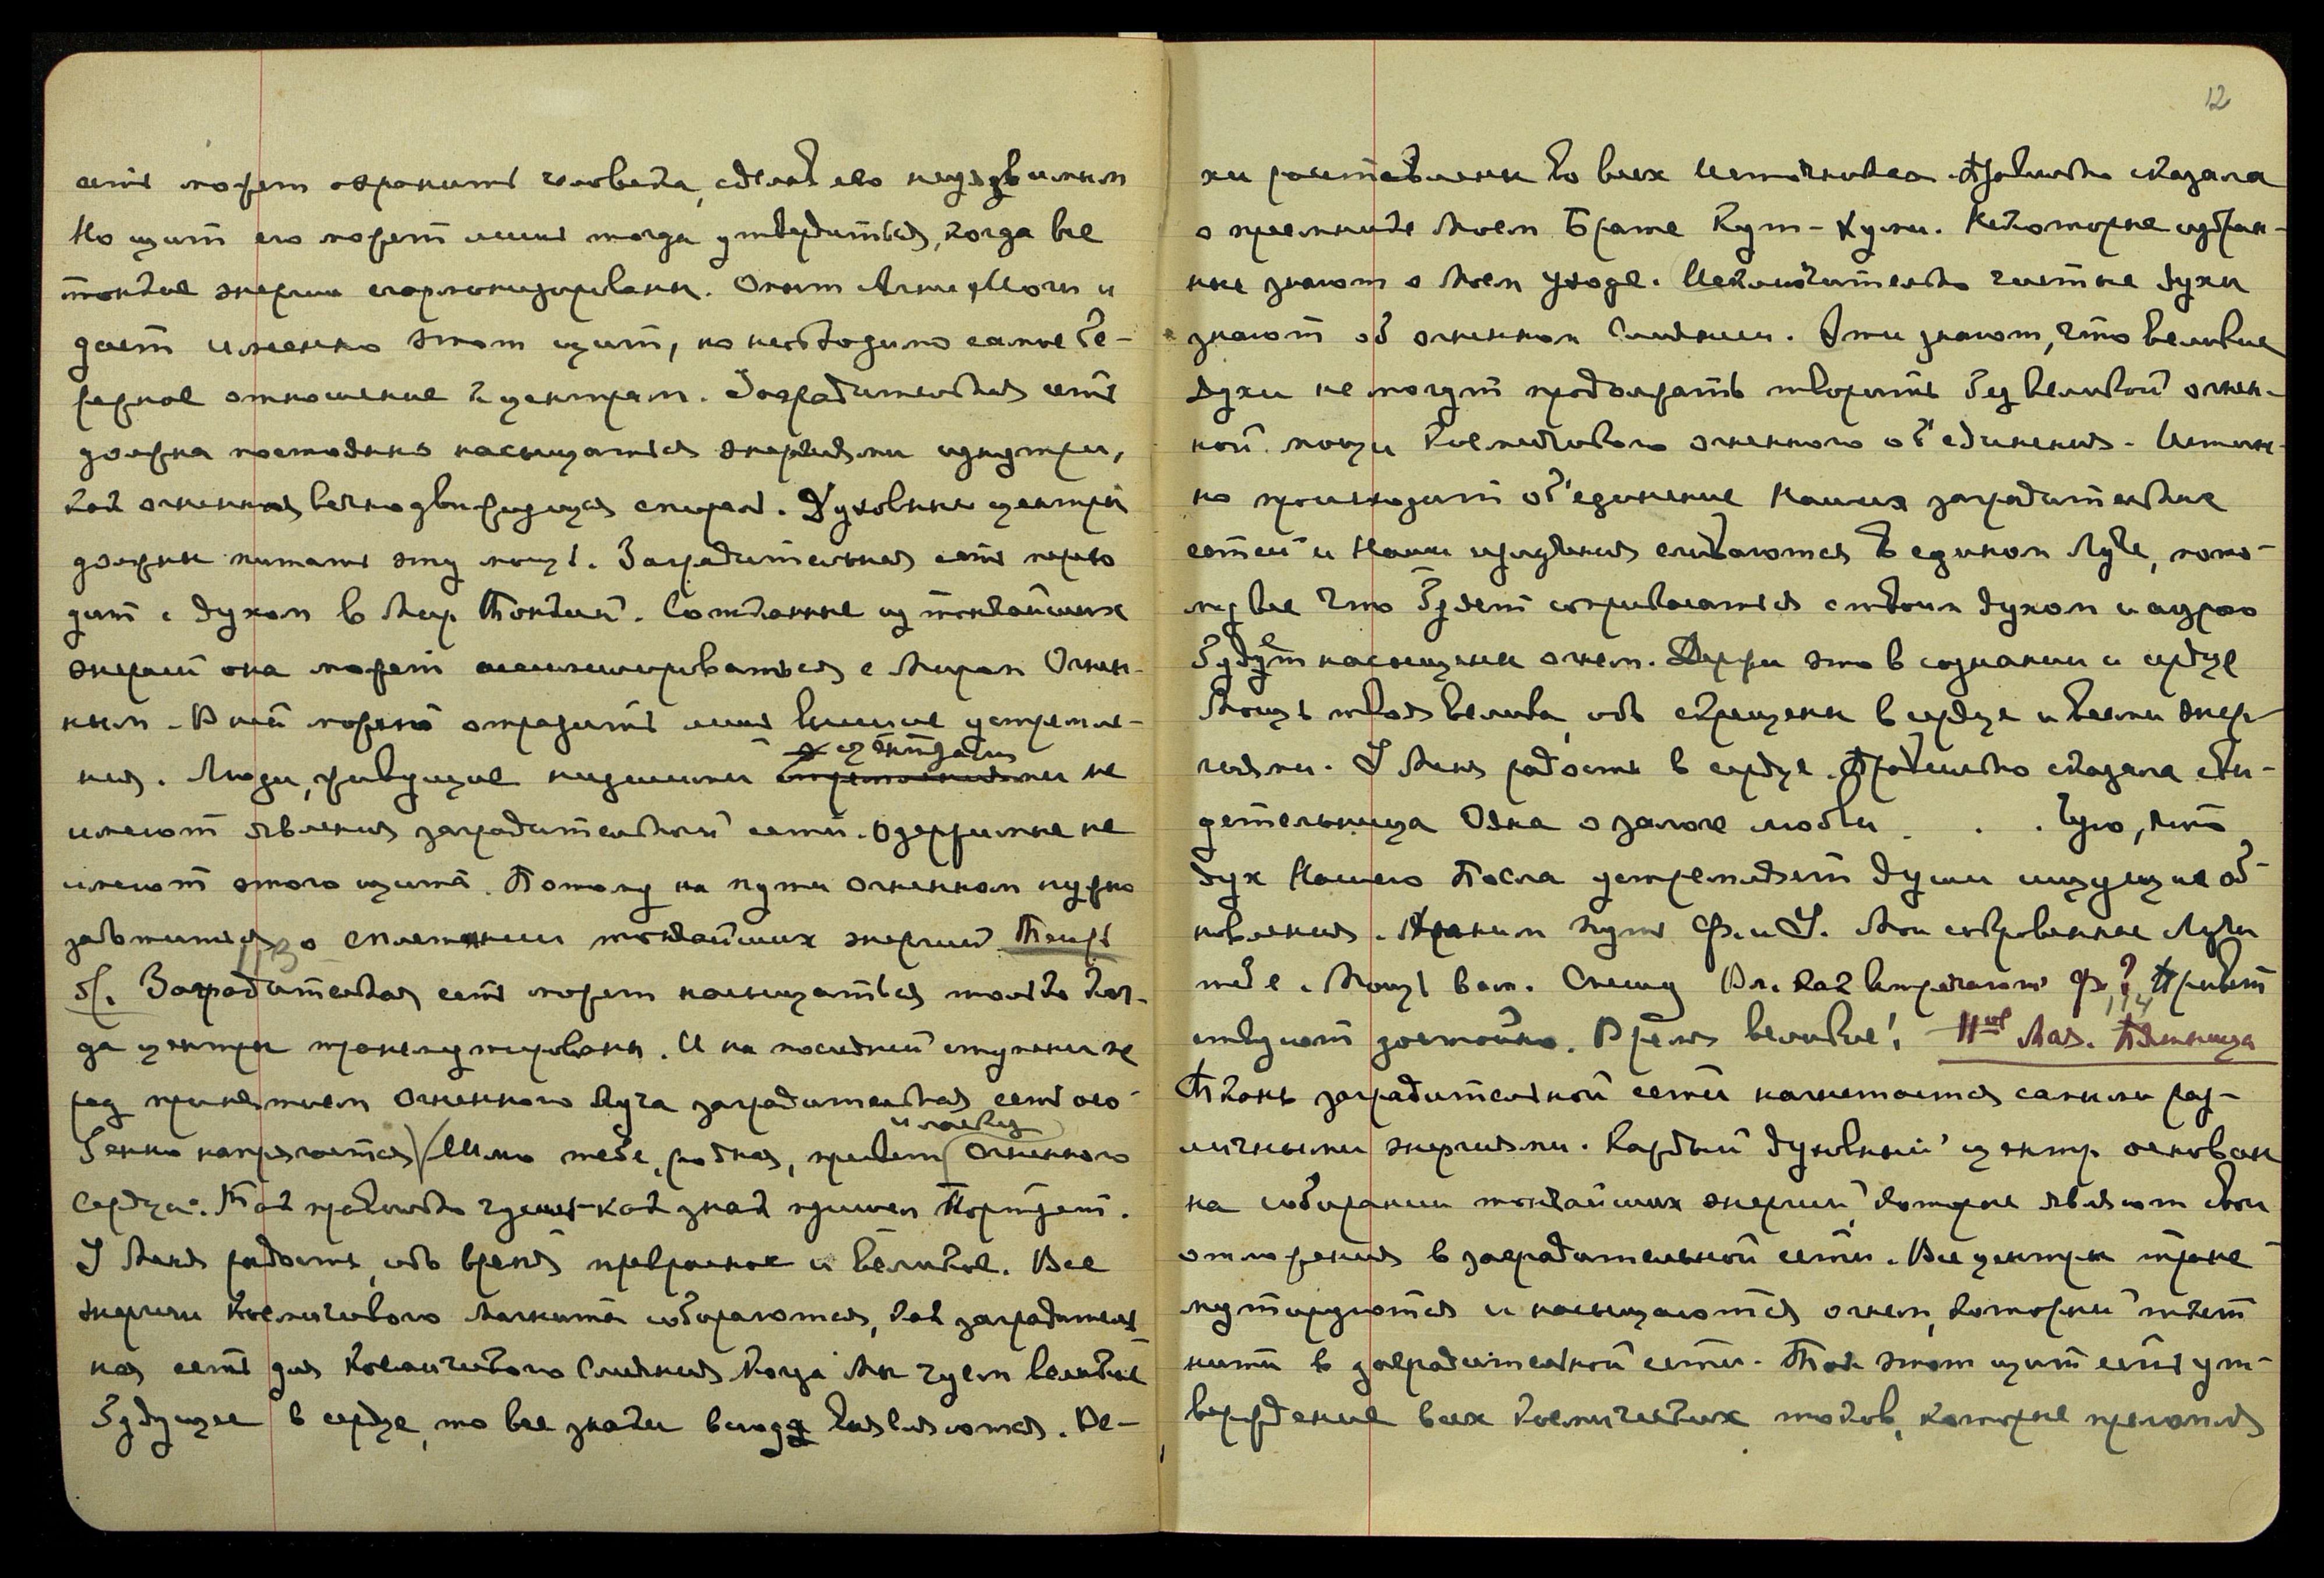 сеть может охранить человека, сделать его неуязвимым
Но щит его может лишь тогда утвердиться, когда все
тонкие энергии сгармонизированы. Опыт Агни Йоги и
дает именно этот щит, но необходимо самое бе-
режное отношение к центрам. Заградительная сеть
должна постоянно насыщаться энергиями изнутри,
как огненная вечнодвижущаяся спираль. Духовные центры
должны питать эту мощь. Заградительная сеть перехо
дит с духом в Мир Тонкий. Сотканные из тончайших
энергий она может ассимилироваться с Миром Огнен-
ным. В ней можно отразить лишь высшие устремле-
ния. Люди, живущие низшими центрами не
имеют явления заградительной сети. Одержимые не
имеют этого щита. Потому на пути огненном нужно
заботиться о сплетении тончайших энергий
113
Заградительная сеть может насыщаться только ког-
да центры трансмутированы. И на последней ступени пе
ред принятием Огненного Луча заградительная сеть осо-
и ласку
бенно напрягается) (Шлю тебе, родная, привет Огненного
Сердца. Так правильно чуешь-как знак пришлем Портрет.
У Меня радость, ибо время прекрасное и великое. Все
энергии Космического Магнита собираются, как заградитель
ная сеть для Космического Слияния Когда Мы чуем великое
будущее в сердце, то все знаки всюду выявляются. Ве-
12
хи расставлены во всех Источниках. Правильно сказала
о преемнике Моем Брате Кут-Хуми. Некоторые избран-
ные знают о Моем Уходе. Исключительно чистые духи
знают об огненном Слиянии. Эти знают, что великие
духи не могут продолжать творить без великой огнен-
ной мощи Космического огненного об'единения. Истин-
но происходит об'единение Наших заградительных
сетей и Наши излучения сливаются в едином Луче, пото-
му все что будет соприкасаться с твоим духом и аурою
будет насыщены огнем. Держи это в сознании и сердце
Мощь твоя велика, ибо скрещены в сердце и всеми энер-
гиями. У Меня радость в сердце. Правильно сказала сви-
детельница Ояна о залоге любви . . . Чую, как
дух Нашего Посла устремляет души ищущие об-
новления. Храним путь Ф. и У. Мои сокровенные Лучи
тебе. Мощь вам. Спешу Вл. как встречают Ф.? Привет
114
ствуют достойно. Время великое! 11ое Мая. Пятница
Ткань заградительной сети нагнетается самыми раз-
личными энергиями. Каждый духовный центр основан
на собирании тончайших энергий, которые являют свои
отложения в заградительной сети. Все центры транс
мутируются и насыщаются огнем, который ткет
нити в заградительной сети. Так этот щит есть ут-
верждение всех космических токов, которые преломля